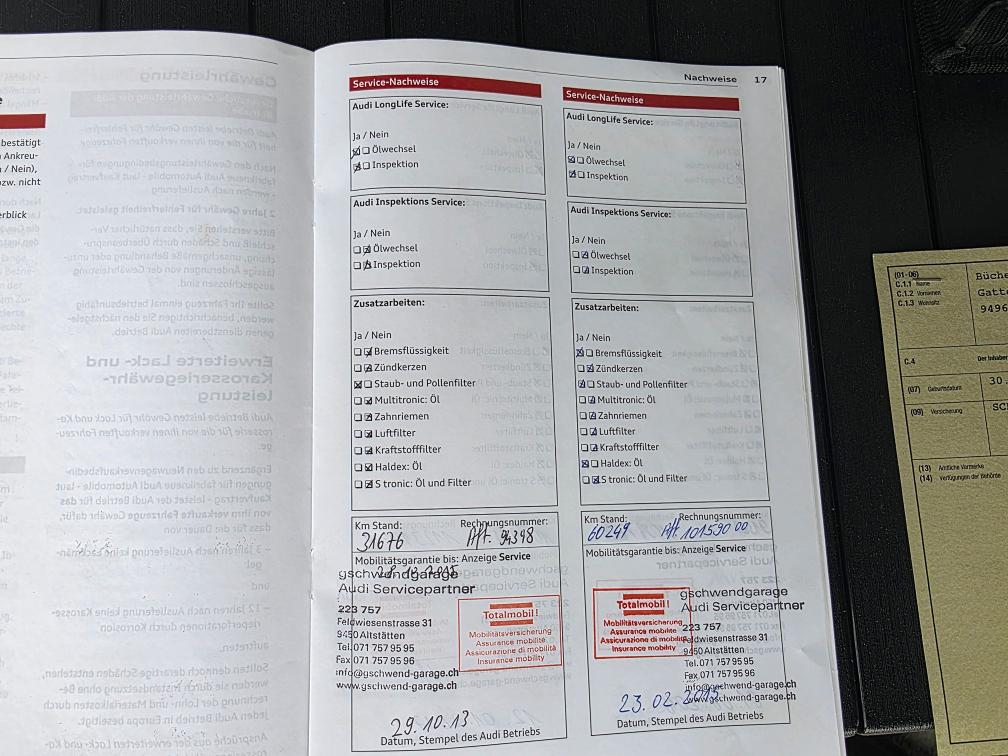 e
bestätigt
n Ankreu-
n / Nein),
bzw. nicht
erblick
Nachweise 17
Service-Nachweise
Audi LongLife Service:
Ja / Nein
Ölwechsel
Inspektion
Audi Inspektions Service:
Ja / Nein
Ölwechsel
Inspektion
Zusatzarbeiten:
Ja / Nein
Bremsflüssigkeit
Zündkerzen
Staub- und Pollenfilter
Multitronic: Öl
Zahnriemen
Luftfilter
Kraftstofffilter
Haldex: Öl
S tronic: Öl und Filter
Km Stand: Rechnungsnummer:
31676 Aft. 94398
Mobilitätsgarantie bis: Anzeige Service
gschwendgarage
Audi Servicepartner
223 757
Feldwiesenstrasse 31
9450 Altstätten
Tel. 071 757 95 95
Fax 071 757 95 96
info@gschwend-garage.ch
www.gschwend-garage.ch
Totalmobil!
Mobilitätsversicherung
Assurance mobilité
Assicurazione di mobilità
Insurance mobility
29.10.13
Datum, Stempel des Audi Betriebs
Service-Nachweise
Audi LongLife Service:
Ja / Nein
Ölwechsel
Inspektion
Audi Inspektions Service:
Ja / Nein
Ölwechsel
Inspektion
Zusatzarbeiten:
Ja / Nein
Bremsflüssigkeit
Zündkerzen
Staub- und Pollenfilter
Multitronic: Öl
Zahnriemen
Luftfilter
Kraftstofffilter
Haldex: Öl
S tronic: Öl und Filter
Km Stand: Rechnungsnummer:
60249 Aft. 101590 00
Mobilitätsgarantie bis: Anzeige Service
gschwendgarage
Audi Servicepartner
223 757
Feldwiesenstrasse 31
9450 Altstätten
Tel. 071 757 95 95
Fax 071 757 95 96
info@gschwend-garage.ch
www.gschwend-garage.ch
Totalmobil!
Mobilitätsversicherung
Assurance mobilité
Assicurazione di mobilità
Insurance mobility
23.02.2015
Datum, Stempel des Audi Betriebs
(01-06)
C.1.1 Name
C.1.2 Vornamen
C.1.3 Wohnsitz
Büche
Gatte
9496
C.4 Der Inhaber
(07) Geburtsdatum 30.
(09) Versicherung SC
(13) Amtliche Vermerke
(14) Verfügungen der Behörde